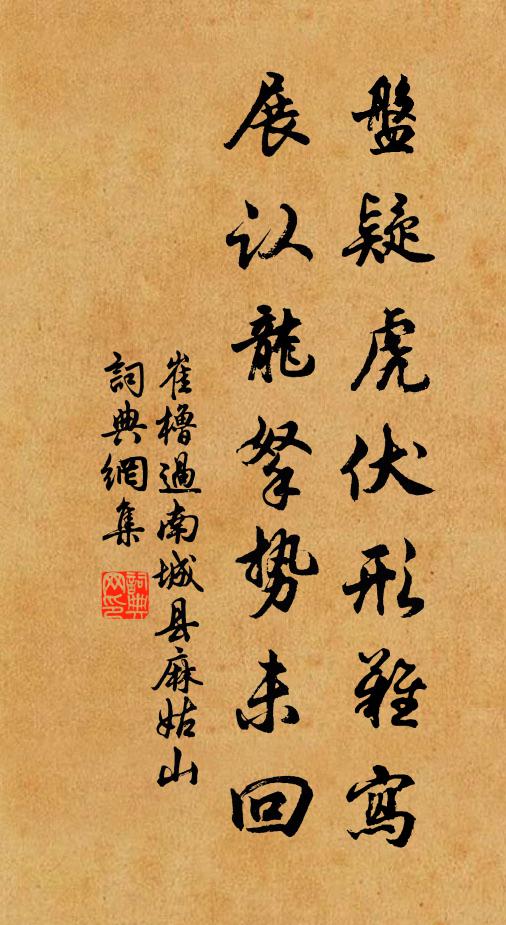 盤疑虎伏形難寫
展认龍拏势未回
崔櫓過南城县麻姑山
詞典網集
詞典网印